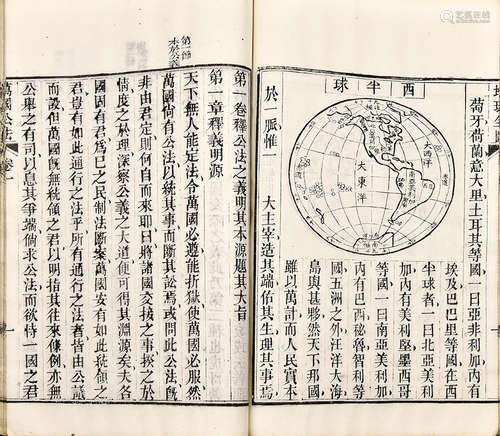 西半球
萄牙荷蘭意大里土耳其等國一曰亞非利加內有
埃及巴巴里等國在西
半球者一曰北亞美利
加內有美利堅墨西哥
等國一曰南亞美利加
內有巴西秘魯智利等
國五洲之外汪洋大海
島與甚夥然天下邦國
雖以萬計而人民實本
於一脈惟一大主宰造其端佑其生理其事焉
大西洋
大東洋
第一卷釋公法之義明其本源題其大旨
第一章釋義明源
第一節
本於公義
天下無人能定法令萬國必遵能折獄使萬國必服然
萬國倘有公法以統其事而斷其訟焉或問此公法旣
非由君定則何自而來耶曰將諸國交接之事揆之於
情度之於理深察公義之大道便可得其淵源矣夫各
國固有君爲己之民制法斷案萬國安有如此統領之
君豈有如此通行之法乎所有通行之法者皆由公議
而設但萬國旣無統領之君以明指其往來條例亦無
公舉之有司以息其爭端倘求公法而欲恃一國之君
萬國公法
卷一